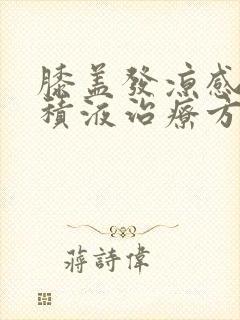 膝盖發凉感
積液治療方
蔣詩偉